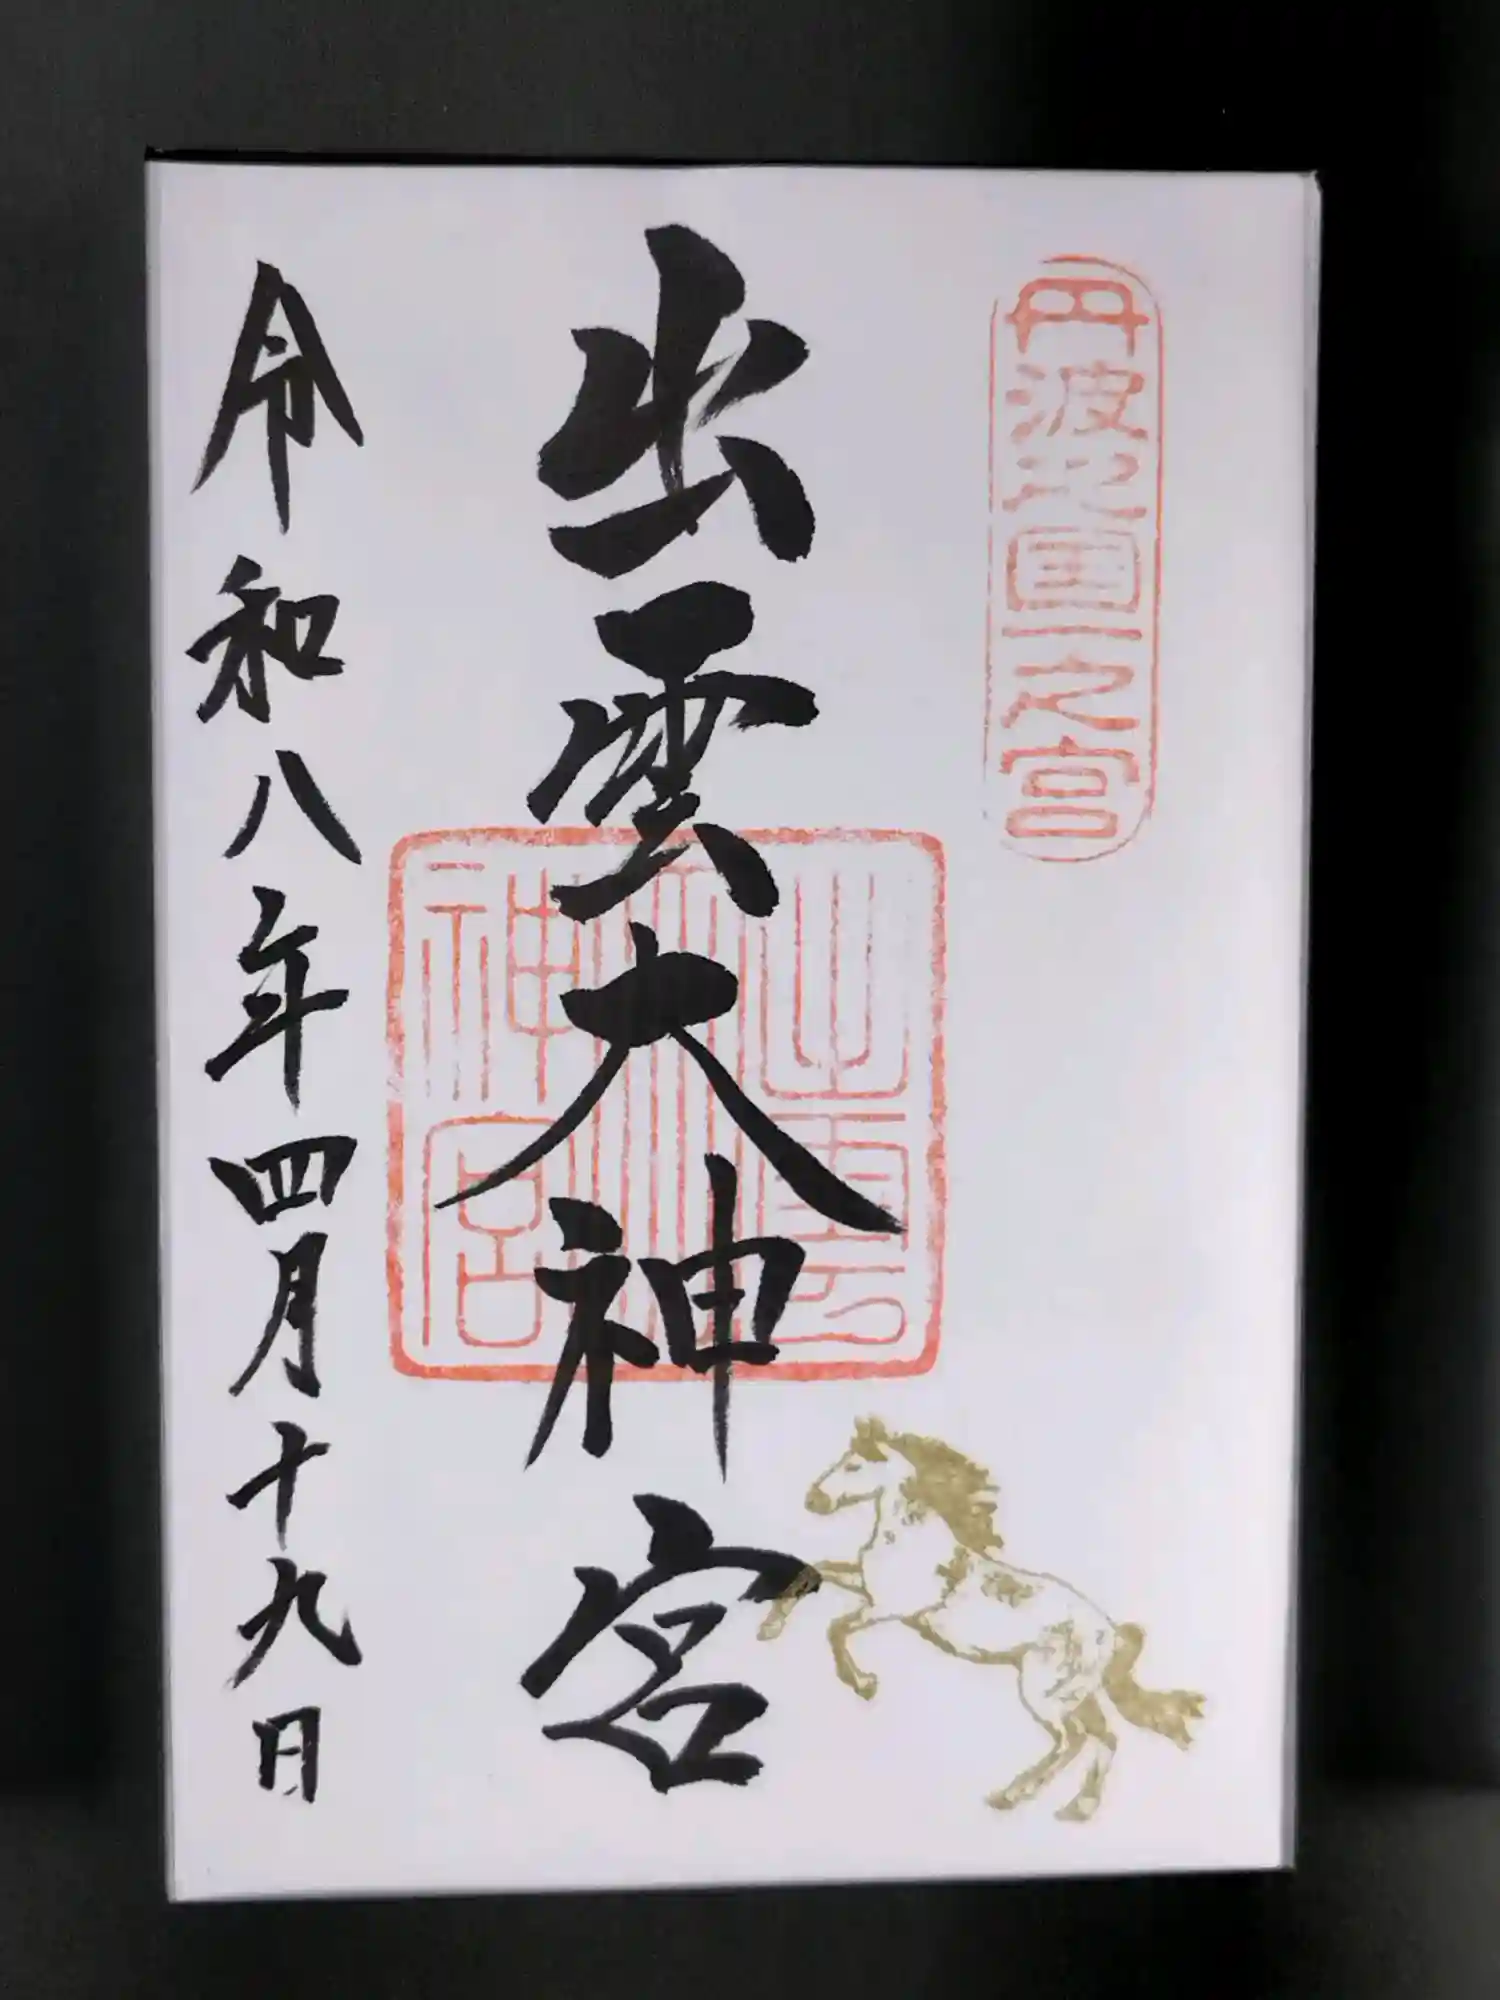 丹波之国一之宮
出雲大神宮
出雲大神宮
令和八年四月十九日